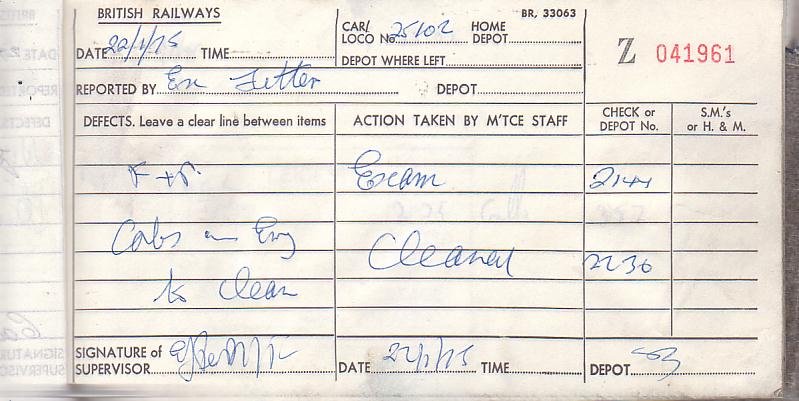 BRITISH RAILWAYS
BR. 33063
DATE 22/1/75 TIME
CAR/LOCO No 25102 HOME DEPOT
DEPOT WHERE LEFT
Z 041961
REPORTED BY Ex Fitter DEPOT
DEFECTS. Leave a clear line between items
ACTION TAKEN BY M'TCE STAFF
CHECK or DEPOT No.
S.M.'s or H. & M.
F+P. Exam 2144
Cabs Eng Cleaned 2236
to clean
SIGNATURE of SUPERVISOR
DATE 22/1/75 TIME
DEPOT